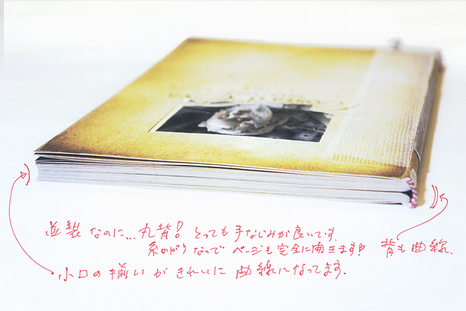 並製なのに…丸背! とっても手なじみが良いです。
糸かがりなので ページも完全に開きます!
背も曲線。
小口の揃いがきれいに曲線になってます。